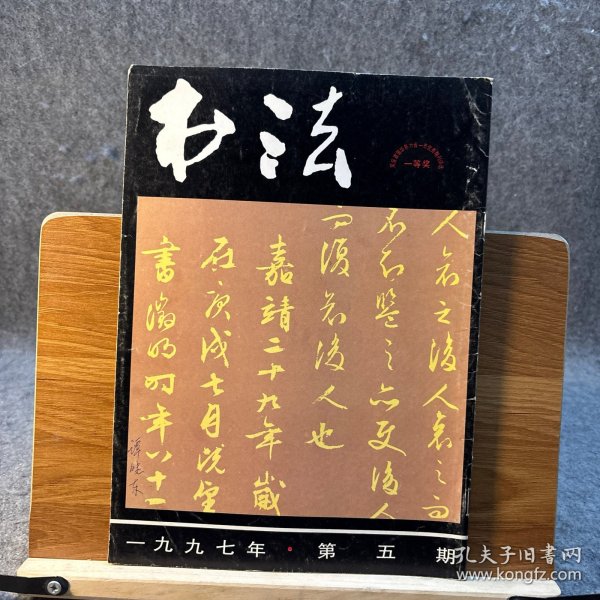 书法
一等奖
人哀之后人哀之而
不不鉴之亦更后人
而复哀后人也
嘉靖二十九年岁
在庚戌七月既望
书徵明时年八十一
一九九七年·第五期
孔夫子旧书网
www.kongfz.com